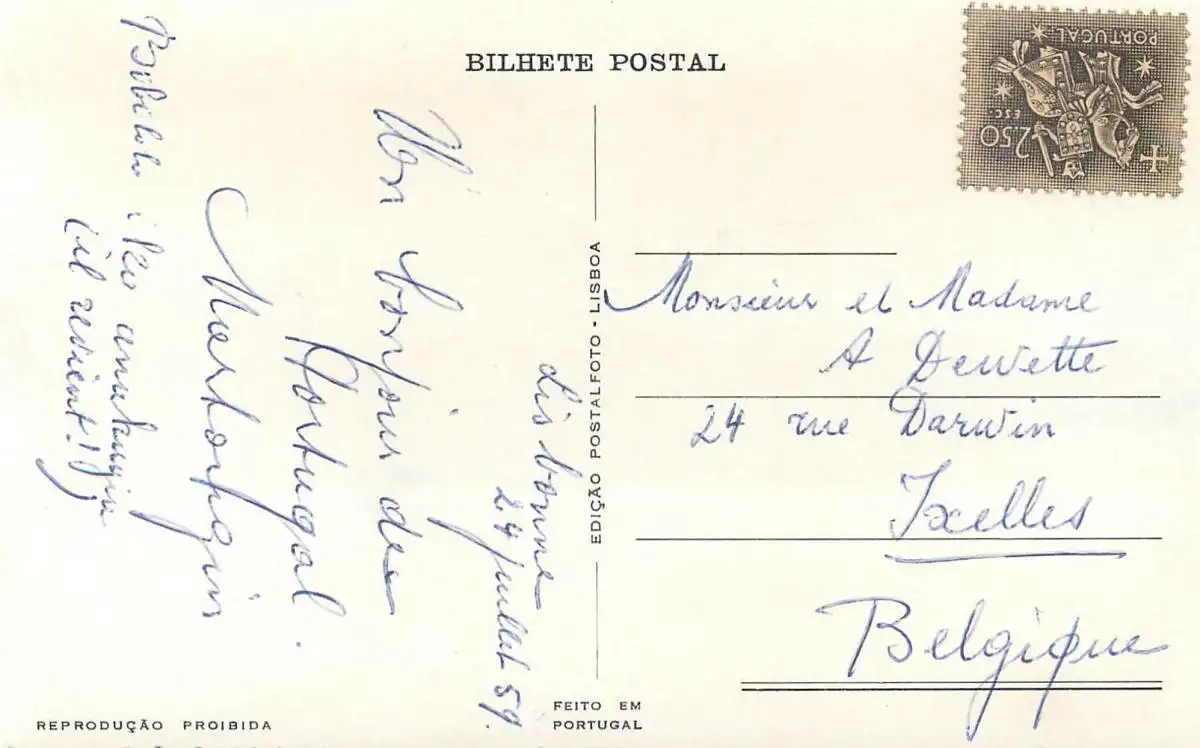 BILHETE POSTAL
PORTUGAL
2$50
ESC.
Lisbonne
24 juillet 59.
Un bonjour de
Portugal.
(il revient!)
EDIÇÃO POSTALFOTO - LISBOA
Monsieur et Madame
A Dewette
24 rue Darwin
Ixelles
Belgique
REPRODUÇÃO PROIBIDA
FEITO EM
PORTUGAL